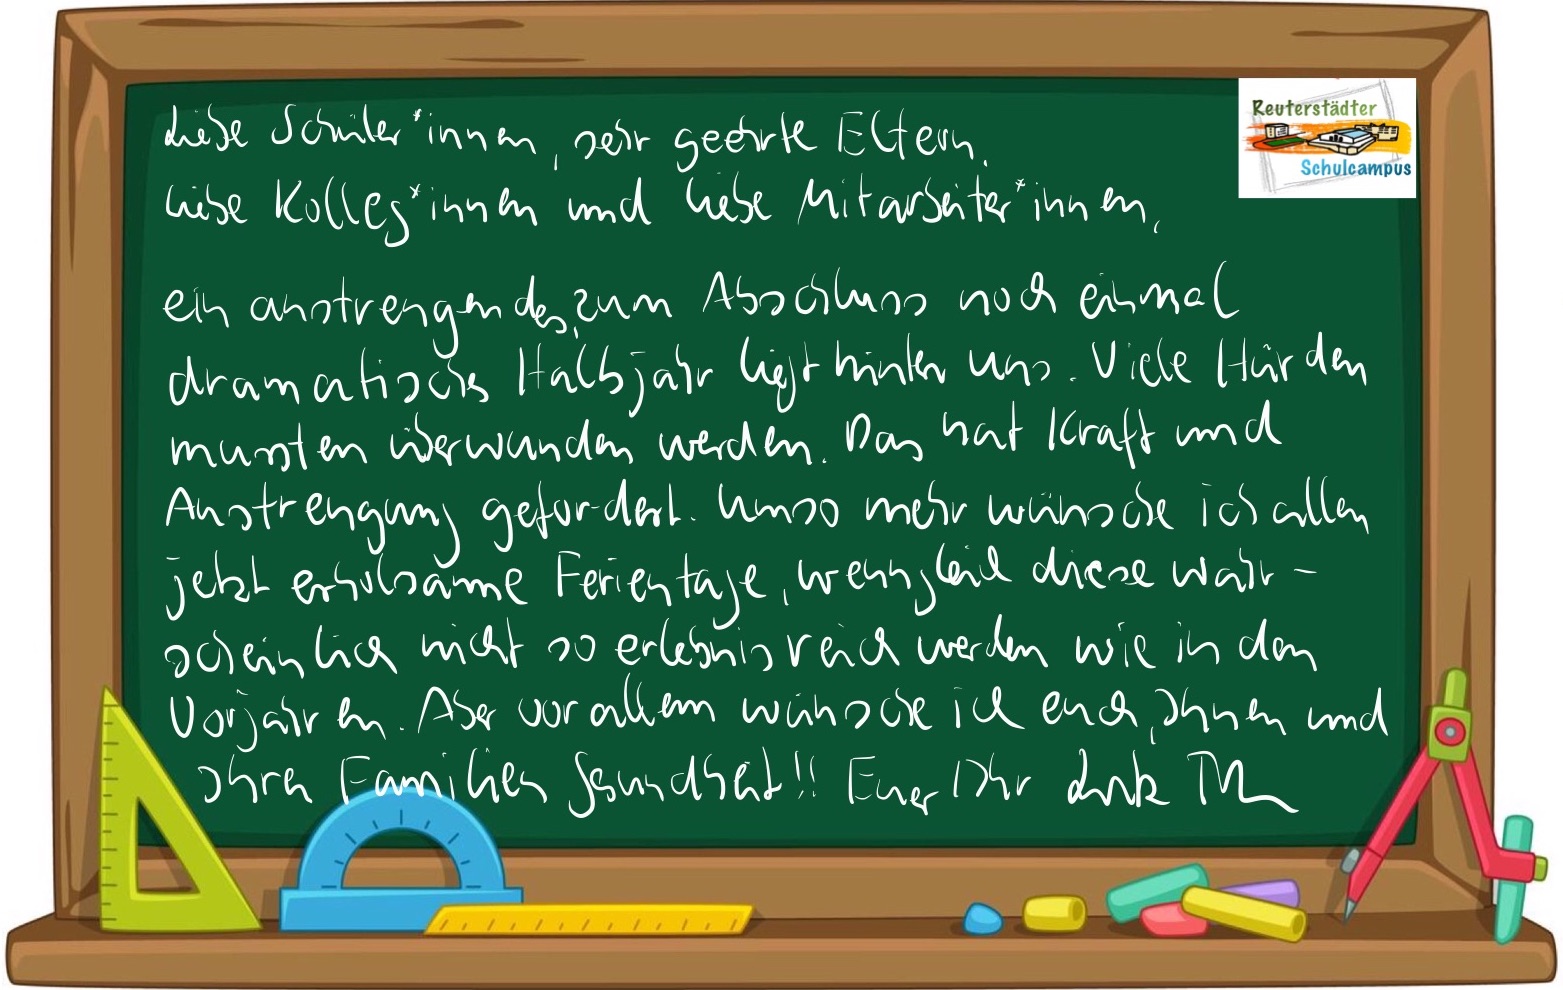 Liebe Schüler*innen, sehr geehrte Eltern,
liebe Kolleg*innen und liebe Mitarbeiter*innen,
ein anstrengendes, zum Abschluss noch einmal
dramatisches Halbjahr liegt hinter uns. Viele Hürden
mussten überwunden werden. Das hat Kraft und
Anstrengung gefordert. Umso mehr wünsche ich allen
jetzt erholsame Ferientage, wenngleich diese wahr-
scheinlich nicht so erlebnisreich werden wie in den
Vorjahren. Aber vor allem wünsche ich euch, Ihnen und
Ihren Familien Gesundheit!! Euer / Ihr
Reuterstädter
Schulcampus